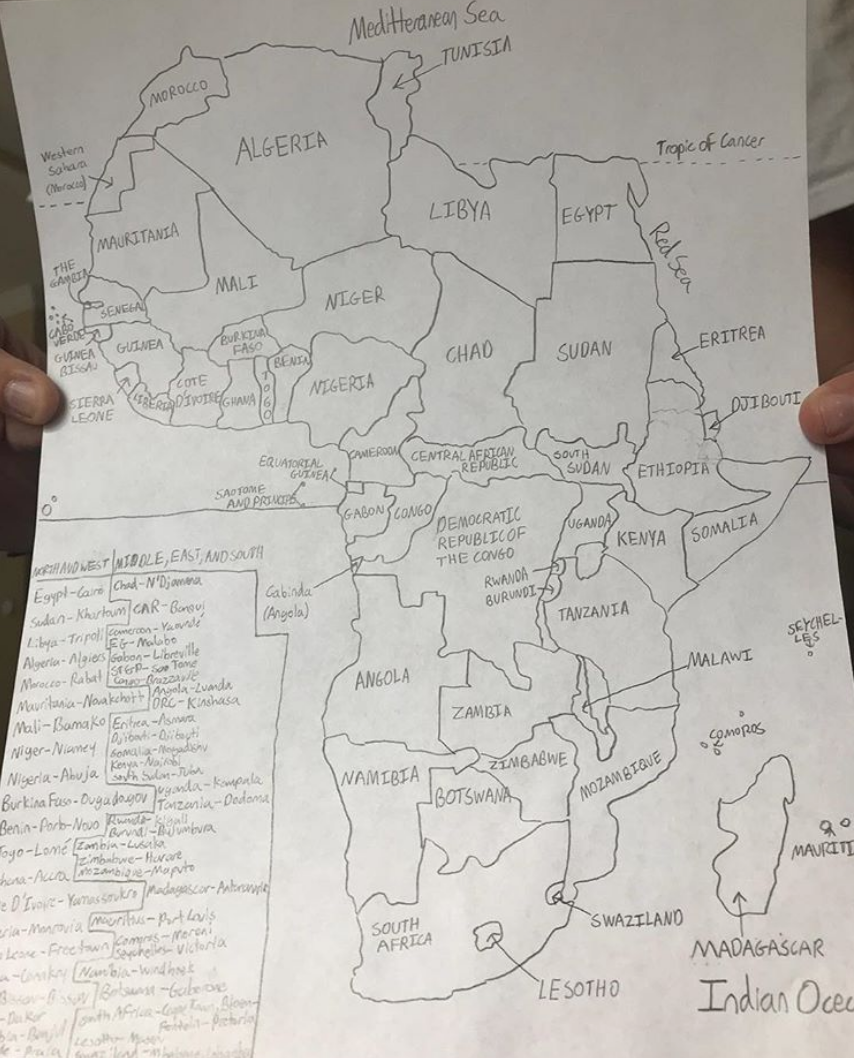 Meditteranean Sea
TUNISIA
MOROCCO
ALGERIA
Western
Sahara
(Morocco)
Tropic of Cancer
LIBYA
EGYPT
Red Sea
MAURITANIA
MALI
NIGER
THE
GAMBIA
SENEGAL
CABO
VERDE
GUINEA
BISSAU
GUINEA
BURKINA
FASO
BENIN
CHAD
SUDAN
ERITREA
SIERRA
LEONE
LIBERIA
COTE
D'IVOIRE
GHANA
TOGO
NIGERIA
DJIBOUTI
CAMEROON
CENTRAL AFRICAN
REPUBLIC
SOUTH
SUDAN
ETHIOPIA
EQUATORIAL
GUINEA
SAO TOME
AND PRINCIPE
GABON
CONGO
DEMOCRATIC
REPUBLIC OF
THE CONGO
UGANDA
KENYA
SOMALIA
RWANDA
BURUNDI
TANZANIA
Cabinda
(Angola)
SEYCHEL-
LES
ANGOLA
ZAMBIA
MALAWI
COMOROS
NAMIBIA
ZIMBABWE
BOTSWANA
MOZAMBIQUE
MAURITI
SOUTH
AFRICA
SWAZILAND
LESOTHO
MADAGASCAR
Indian Ocea
NORTH AND WEST
Egypt-Cairo
Sudan-Khartoum
Libya-Tripoli
Algeria-Algiers
Morocco-Rabat
Mauritania-Novakchott
Mali-Bamako
Niger-Niamey
Nigeria-Abuja
Burkina Faso-Ougadougov
Benin-Porto-Novo
Togo-Lomé
hana-Accra
e D'Ivoire-Yamassoukro
eria-Monrovia
Leone-Freetown
a-Conakry
Bissau-Bissau
-Dakar
bia-Banjul
de-Praia
MIDDLE, EAST, AND SOUTH
Chad-N'Djamena
CAR-Bangui
Cameroon-Yaoundé
EG-Malabo
Gabon-Libreville
ST&P-Sao Tome
Congo-Brazzaville
Angola-Luanda
DRC-Kinshasa
Eritrea-Asmara
Djibouti-Djibouti
Somalia-Mogadishu
Kenya-Nairobi
South Sudan-Juba
Uganda-Kampala
Tanzania-Dodoma
Rwanda-Kigali
Burundi-Bujumbura
Zambia-Lusaka
Zimbabwe-Harare
Mozambique-Maputo
Madagascar-
Mauritius-Port Louis
Comoros-Moroni
Seychelles-Victoria
Namibia-Windhoek
Botswana-Gaborone
South Africa-Cape Town, Bloem-
Pretoria
Lesotho-